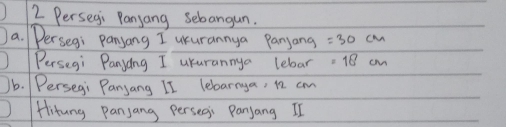 2 Persegi Panjang Sebangun.
a. Persegi Panjang I ukurannya Panjang = 30 cm
Persegi Panjang I ukurannya lebar = 18 cm
b. Persegi Panjang II lebarnya = 12 cm
Hitung panjang Persegi Panjang II